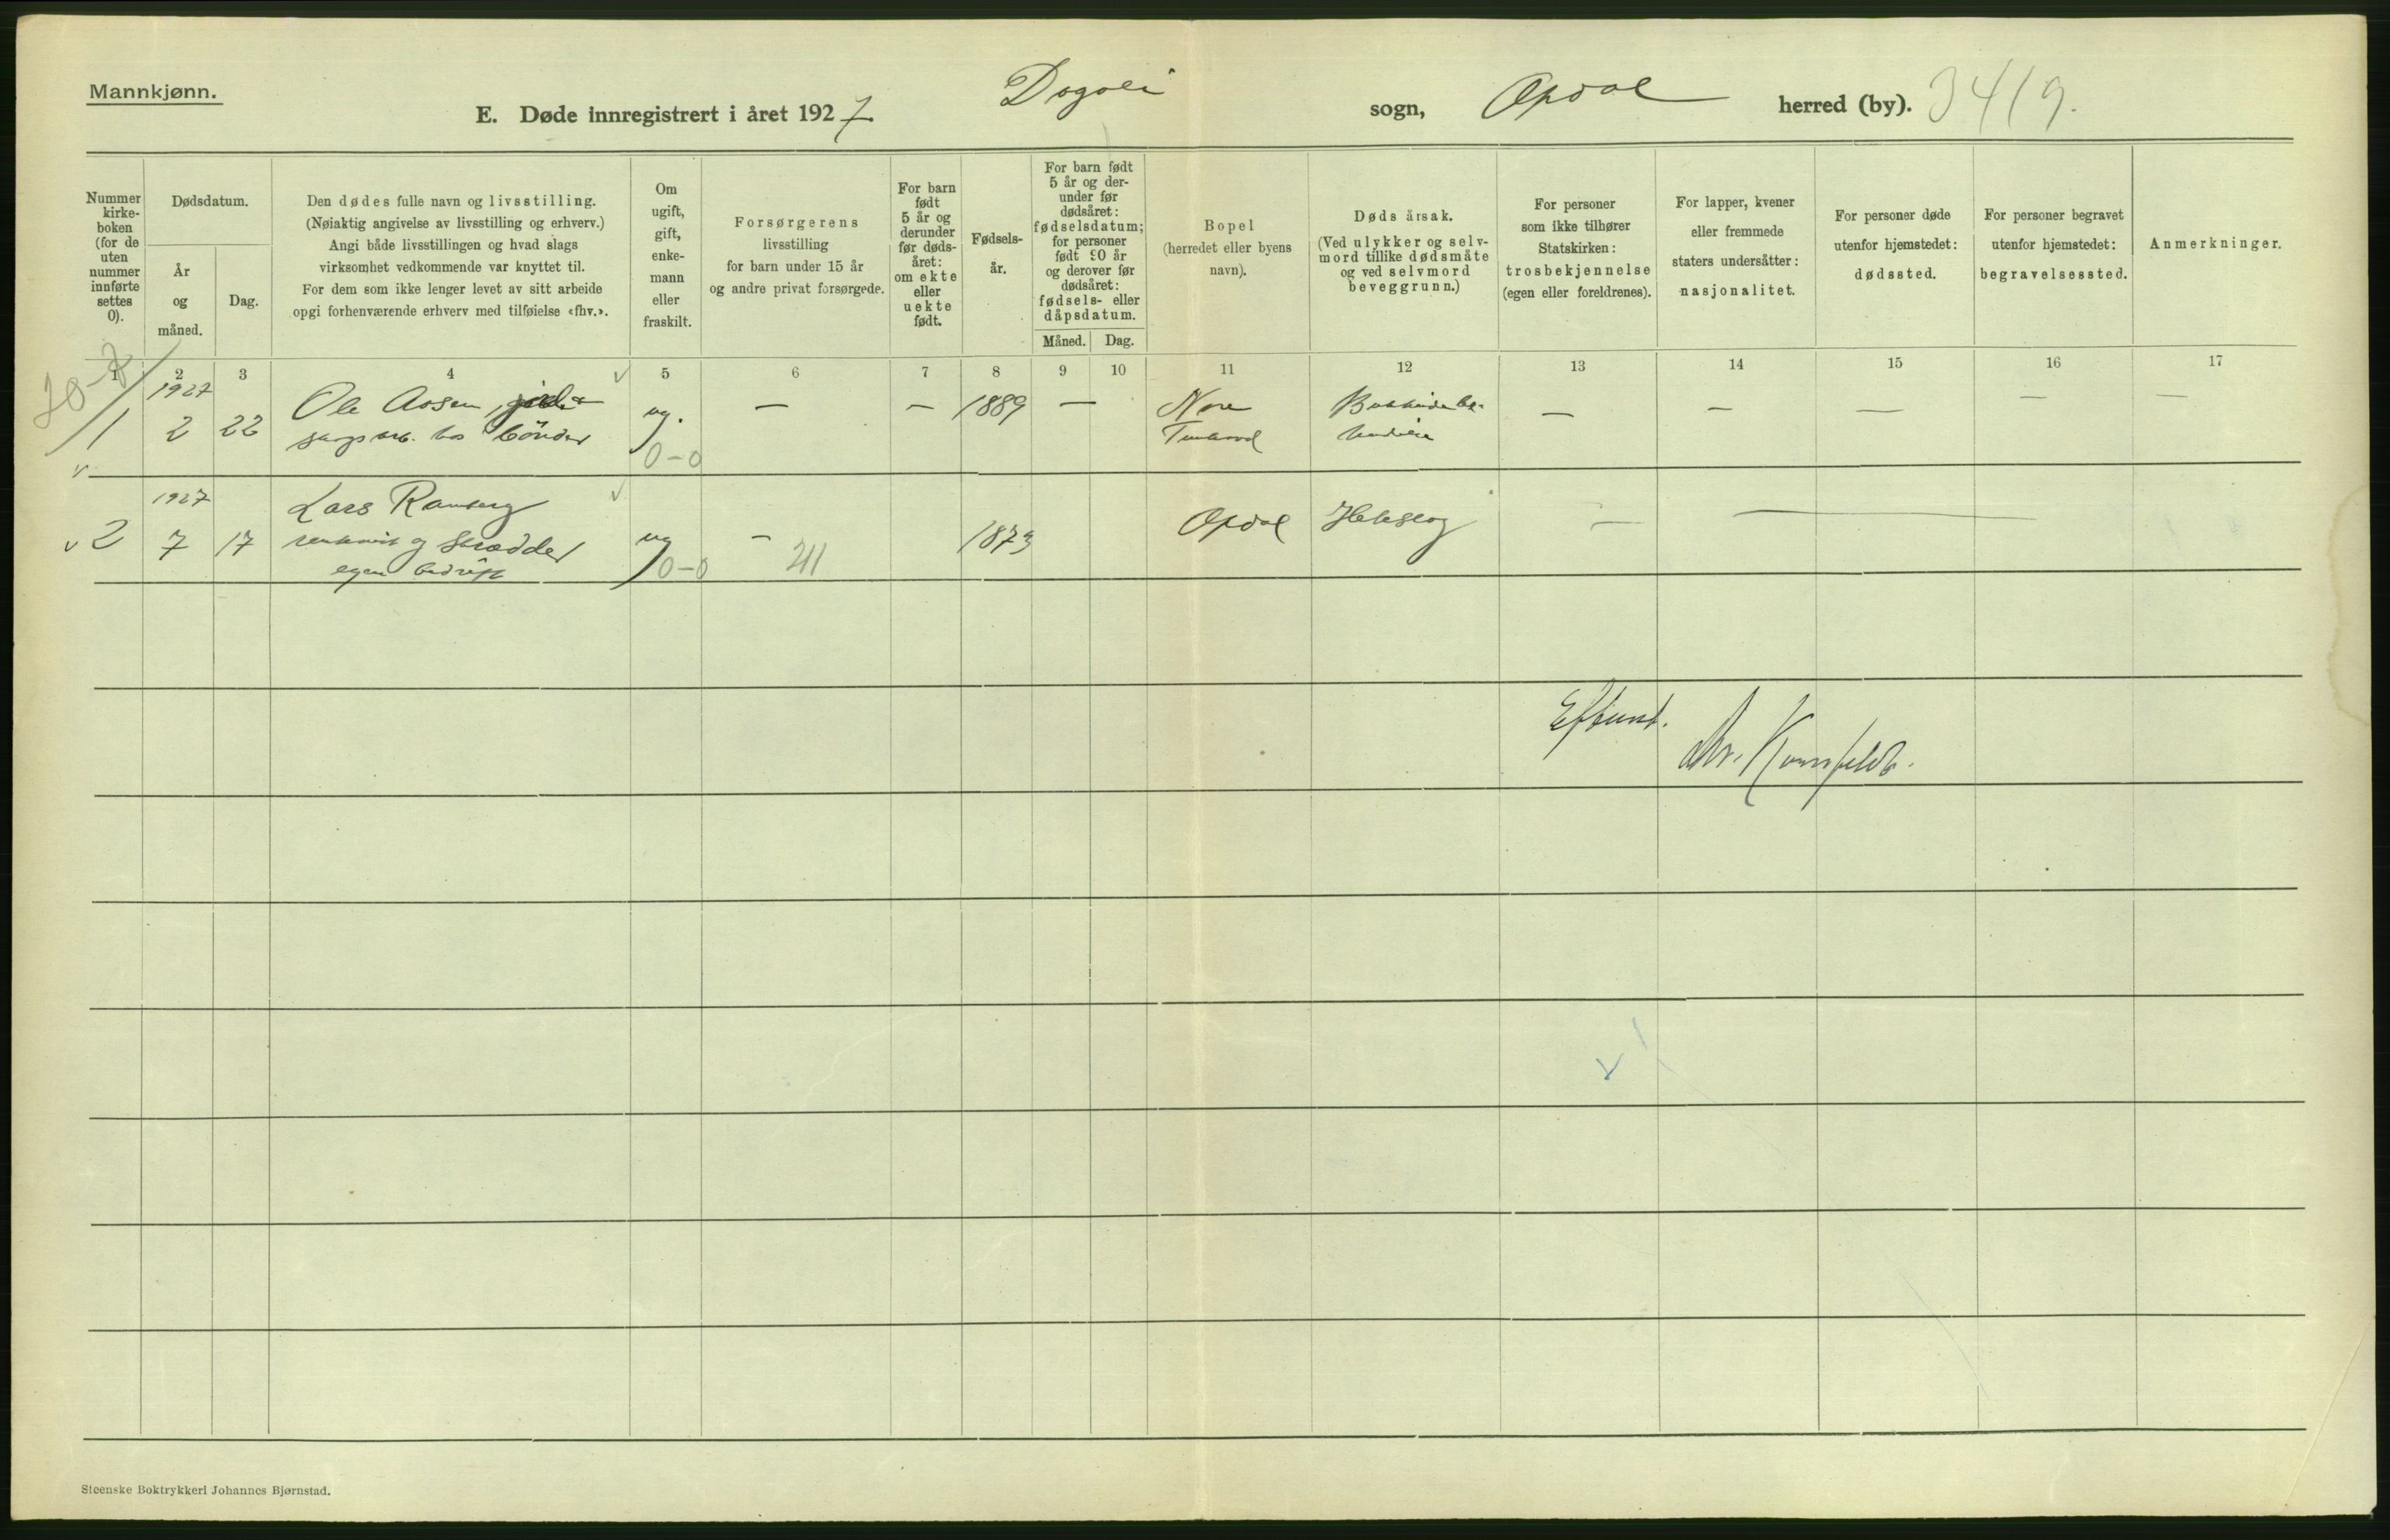 Mannkjønn.
E. Døde innregistrert i året 1927 Dagali sogn, Opdal herred (by). 3419.
Nummer
kirke-
boken
(for de
uten
nummer
innførte
settes
0).
Dødsdatum.
År
og
måned.
Dag.
Den dødes fulle navn og livsstilling.
(Nøiaktig angivelse av livsstilling og erhverv.)
Angi både livsstillingen og hvad slags
virksomhet vedkommende var knyttet til.
For dem som ikke lenger levet av sitt arbeide
opgi forhenværende erhverv med tilføielse «fhv.».
Om
ugift,
gift,
enke-
mann
eller
fraskilt.
Forsørgerens
livsstilling
for barn under 15 år
og andre privat forsørgede.
For barn
født
5 år og
derunder
før døds-
året:
om ekte
eller
uekte
født.
Fødsels-
år.
For barn født
5 år og der-
under før
dødsåret:
fødselsdatum;
for personer
født 90 år
og derover før
dødsåret:
fødsels- eller
dåpsdatum.
Måned. Dag.
Bopel
(herredet eller byens
navn).
Døds årsak.
(Ved ulykker og selv-
mord tillike dødsmåte
og ved selvmord
beveggrunn.)
For personer
som ikke tilhører
Statskirken:
trosbekjennelse
(egen eller foreldrenes).
For lapper, kvener
eller fremmede
staters undersåtter:
nasjonalitet.
For personer døde
utenfor hjemstedet:
dødssted.
For personer begravet
utenfor hjemstedet:
begravelsessted.
Anmerkninger.
1 2 3 4 5 6 7 8 9 10 11 12 13 14 15 16 17
1927
1 2 22 Ole Aasen, ug. — — 1889 — Nore — — — — —
hos bönder
0-0
1927
2 7 17 Lars Ramberg ug — 1873 Opdal Hjerteslag — —
og skrædder
egen bedrift
0-0 211
Steenske Boktrykkeri Johannes Bjørnstad.